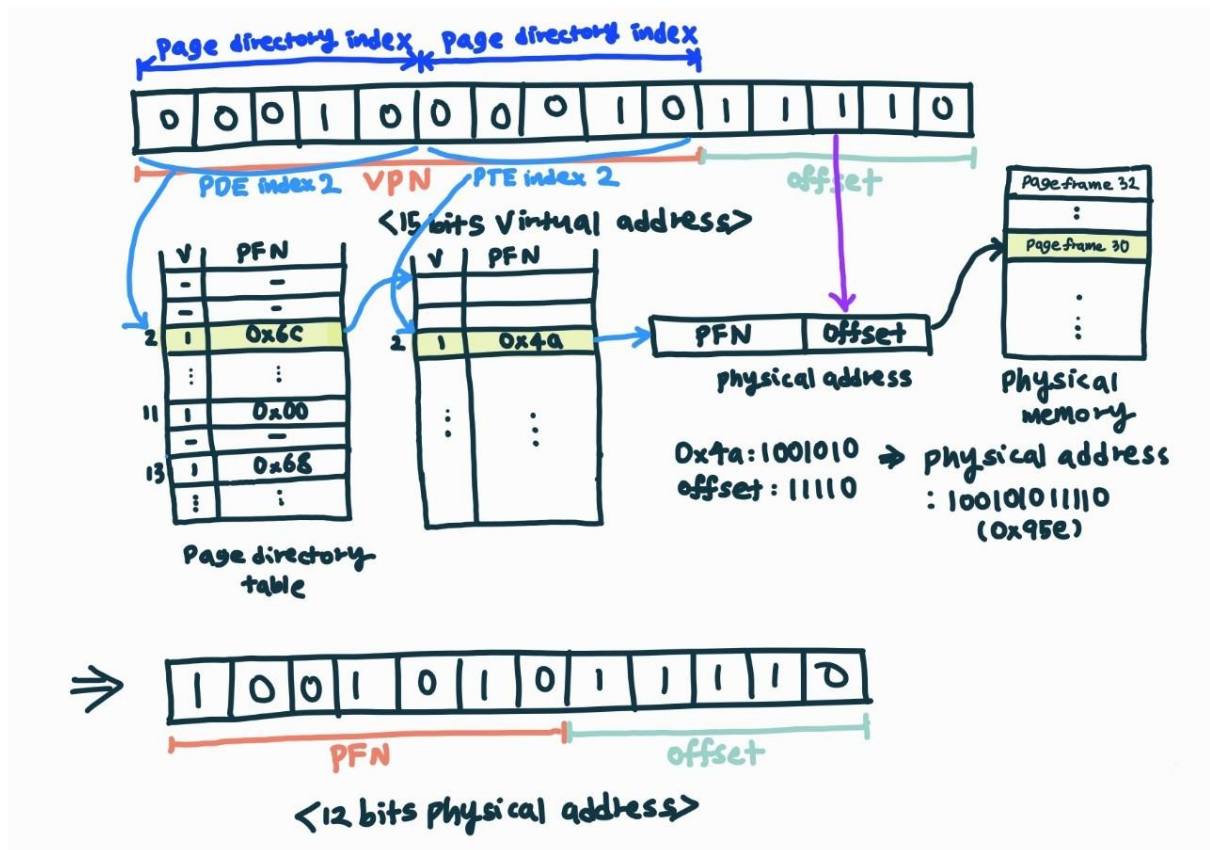 Page directory index Page directory index
0 0 0 1 0 0 0 0 1 0 1 1 1 1 0
PDE index 2 VPN PTE index 2 offset
<15 bits Virtual address>
V PFN
- -
- -
2 1 0x6C
⋮ ⋮
11 1 0x00
- -
13 1 0x68
⋮ ⋮
Page directory
table
V PFN
2 1 0x4a
⋮ ⋮
PFN offset
physical address
Page frame 32
⋮
Page frame 30
⋮
Physical
memory
0x4a:1001010 ⇒ physical address
offset:11110 :100101011110
(0x95e)
⇒ 1 0 0 1 0 1 0 1 1 1 1 0
PFN offset
<12 bits physical address>